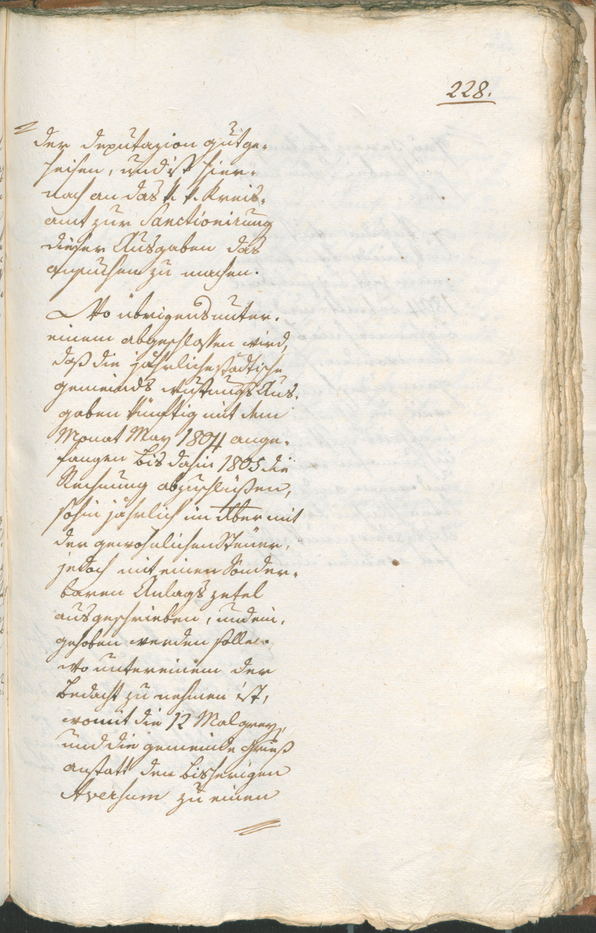 228.
der Deputazion gutge-
heisen, und ist hier-
nach an das k. k. Kreis-
amt zur Sanctionirung
dieser Ausgaben das
Ansuchen zu machen.
Wo übrigens unter-
einem abgeschlossen wird,
daß die jährliche städtische
gemeinds Aus-
gaben künftig mit dem
Monat May 1804 ange-
fangen bis dahin 1805 die
Rechnung abzuschlüßen,
sohin jährlich im 8ber mit
der gewöhnlichen Steuer,
jedoch mit einen Sonder-
baren Anlags zetel
ausgeschrieben, und ein-
gehoben werden solle.
wo untereinem der
Bedacht zu nehmen ist,
womit die 12 Malgrey,
und die gemeinde Gries
anstatt den bisherigen
Aversum zu einen